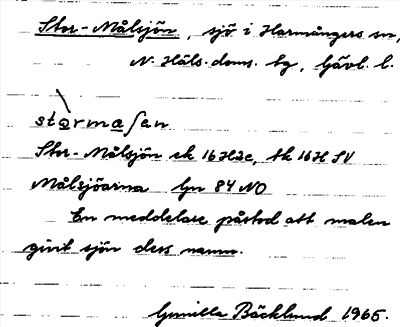 Stor-Målsjön, sjö i Harmångers sn,
N. Häls. doms. bg, Gävl. l.
stòrmaʃen
Stor-Målsjön ek 16H2c, tk 16H SV
Målsjöarna Gn 84 NO
En meddelare påstod att malen
givit sjön dess namn.
Gunilla Bäcklund 1965.